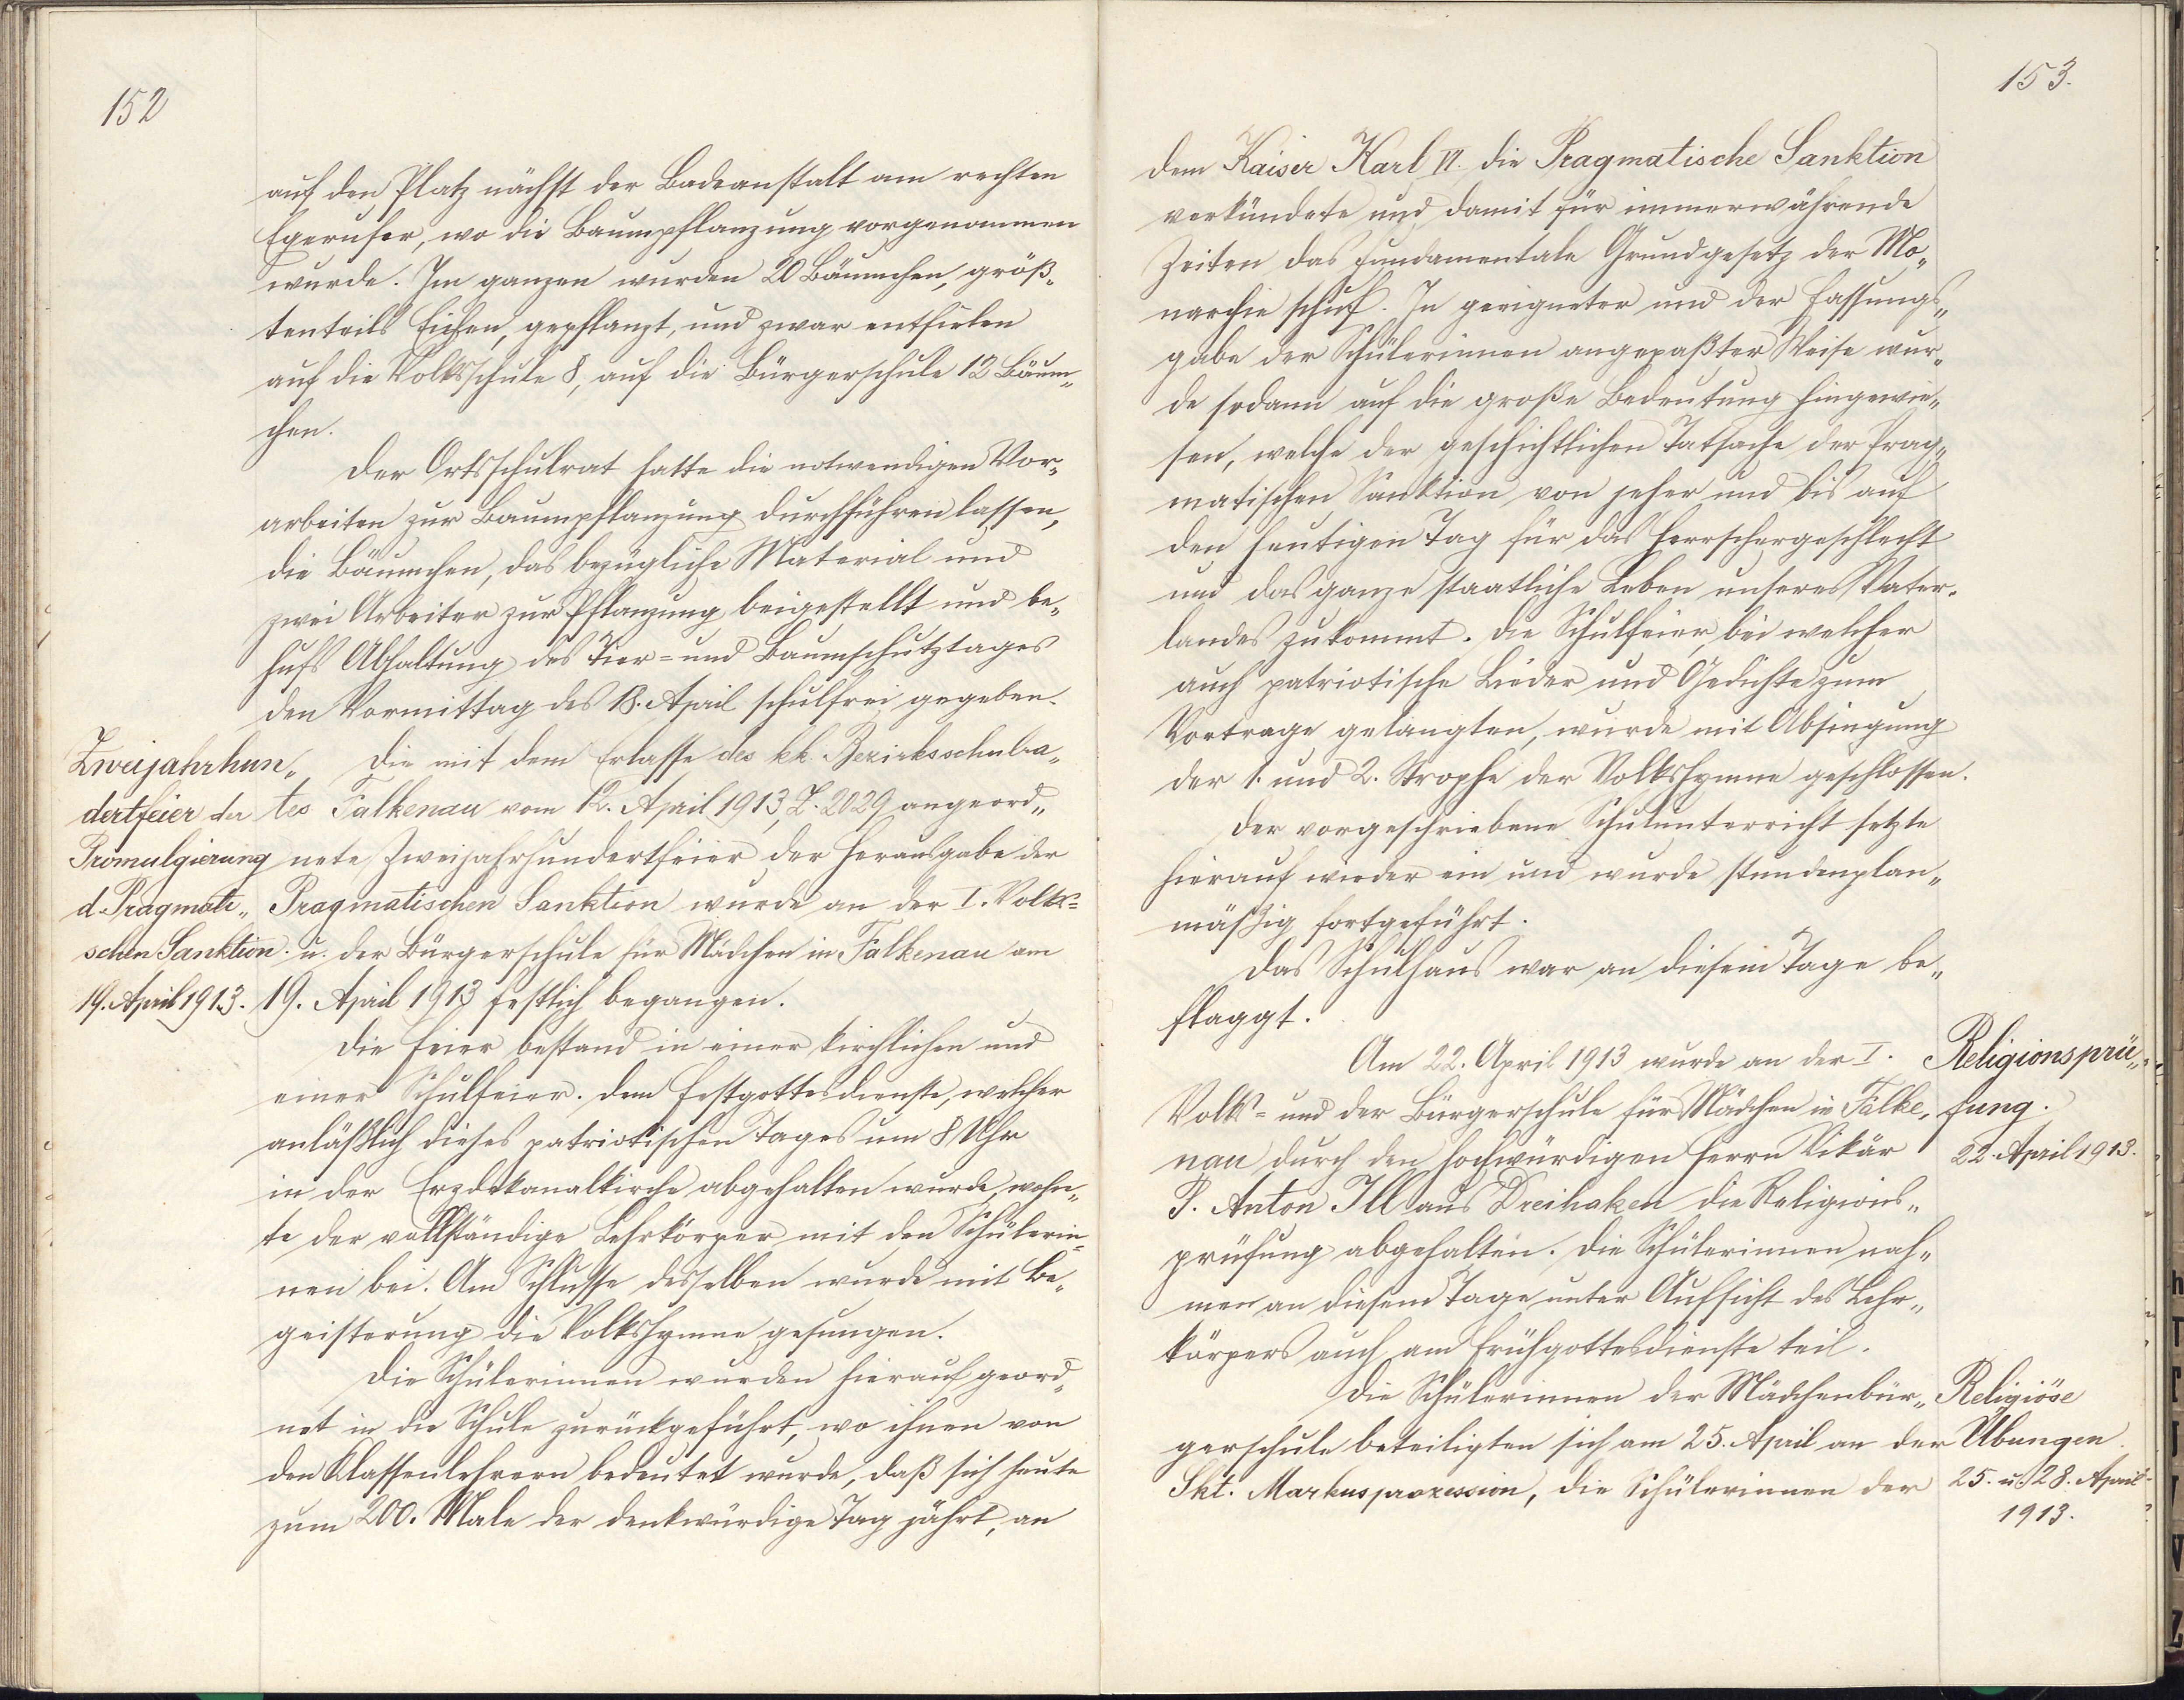 152
auf den Platz nächst der Badeanstalt am rechten
Egerufer, wo die Baumpflanzung vorgenommen
wurde. Im ganzen wurden 20 Bäumchen, größ„
tenteils Eichen, gepflanzt, und zwar entfielen
auf die Volksschule 8, auf die Bürgerschule 12 Bäum„
chen.
Der Ortsschulrat hatte die notwendigen Vor„
arbeiten zur Baumpflanzung durchführen lassen,
die Bäumchen, das bezügliche Material und
zwei Arbeiter zur Pflanzung beigestellt und be„
hufs Abhaltung des Tier= und Baumschutztages
den Vormittag des 18. April schulfrei gegeben.
Zweijahrhun„
dertfeier der
Promulgierung
d. Pragmati„
schen Sanktion.
19. April 1913.
Die mit dem Erlasse des kk. Bezirksschulra„
tes Falkenau vom 12. April 1913, Z. 2029 angeord„
nete Zweijahrhundertfeier der Herausgabe der
Pragmatischen Sanktion wurde an der I. Volks=
u. der Bürgerschule für Mädchen in Falkenau am
19. April 1913 festlich begangen.
Die Feier bestand in einer kirchlichen und
einer Schulfeier. Dem Festgottesdienste, welcher
anläßlich dieses patriotischen Tages um 8 Uhr
in der Erzdekanalkirche abgehalten wurde, wohn„
te der vollständige Lehrkörper mit den Schülerin„
nen bei. Am Schlusse desselben wurde mit Be„
geisterung die Volkshymne gesungen.
Die Schülerinnen wurden hierauf geord„
net in die Schule zurückgeführt, wo ihnen von
den Klassenlehrern bedeutet wurde, daß sich heute
zum 200. Male der denkwürdige Tag jährt, an
153.
dem Kaiser Karl VI. die Pragmatische Sanktion
verkündete und damit für immerwährende
Zeiten das fundamentale Grundgesetz der Mo„
narchie schuf. In geeigneter und der Fassungs„
gabe der Schülerinnen angepaßter Weise wur„
de sodann auf die große Bedeutung hingewie„
sen, welche der geschichtlichen Tatsache der Prag„
matischen Sanktion von jeher und bis auf
den heutigen Tag für das Herrschergeschlecht
und das ganze staatliche Leben unseres Vater„
landes zukommt. Die Schulfeier, bei welcher
auch patriotische Lieder und Gedichte zum
Vortrage gelangten, wurde mit Absingung
der 1. und 2. Strophe der Volkshymne geschlossen.
Der vorgeschriebene Schulunterricht setzte
hierauf wieder ein und wurde stundenplan„
mäßig fortgeführt.
Das Schulhaus war an diesem Tage be„
flaggt.
Am 22. April 1913 wurde an der I.
Volks= und der Bürgerschule für Mädchen in Falke„
nau durch den hochwürdigen Herrn Vikär
P. Anton Ill aus Dreihaken die Religions„
prüfung abgehalten. Die Schülerinnen nah„
men an diesem Tage unter Aufsicht des Lehr„
körpers auch am Frühgottesdienste teil.
Religionsprü„
fung.
22. April 1913.
Die Schülerinnen der Mädchenbür„
gerschule beteiligten sich am 25. April an der
Skt. Markusprozession, die Schülerinnen der
Religiöse
Übungen.
25. u. 28. April
1913.